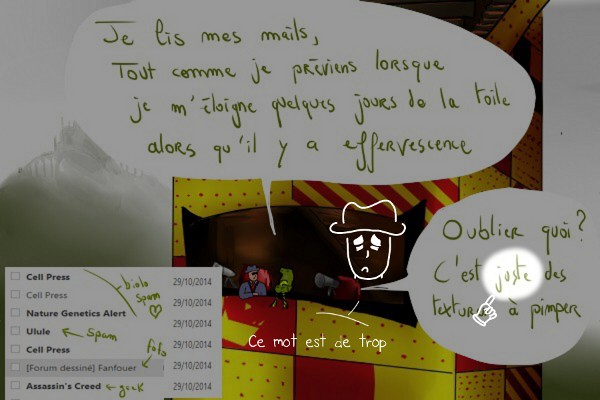 Je lis mes mails,
Tout comme je préviens lorsque
je m'éloigne quelques jours de la toile
alors qu'il y a effervescence
Oublier quoi?
C'est juste des
textures à pimper
Ce mot est de trop
Cell Press 29/10/2014
Cell Press 29/10/2014
Nature Genetics Alert 29/10/2014
Ulule 29/10/2014
Cell Press 29/10/2014
[Forum dessiné] Fanfouer 29/10/2014
Assassin's Creed 29/10/2014
biolo
spam
spam
fofo
geek